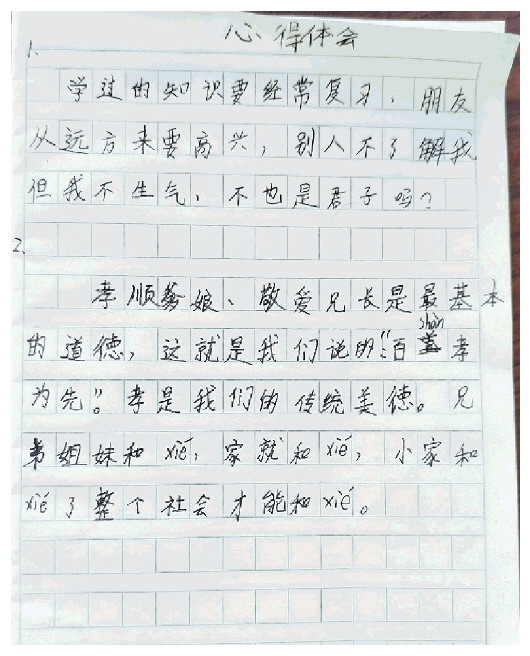 心得体会
1.
学过的知识要经常复习，朋友
从远方来要高兴，别人不了解我
但我不生气，不也是君子吗？
2.
孝顺爹娘、敬爱兄长是最基本
的道德，这就是我们说的“百善孝
shàn
为先”。孝是我们的传统美德。兄
弟姐妹和xié，家就和xié，小家和
xié了整个社会才能和xié。